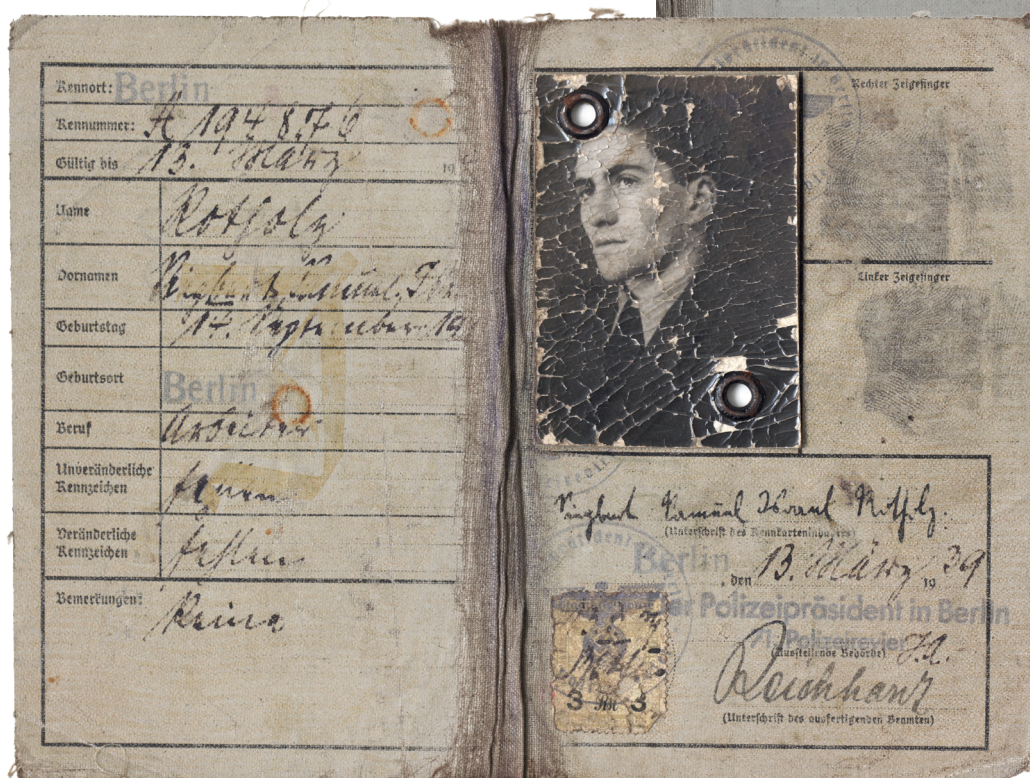 Kennort: Berlin
Kennummer: A 194 876
Gültig bis 13. März 19
Name Rotholz
Vornamen Siegbert, Samuel, Isr
Geburtstag 14. September 19
Geburtsort Berlin
Beruf Arbeiter
Unveränderliche
Kennzeichen fehlen
Veränderliche
Kennzeichen fehlen
Bemerkungen: Keine
Rechter Zeigefinger
Linker Zeigefinger
Siegbert Samuel Israel Rotholz.
(Unterschrift des Kennkarteninhabers)
Berlin, den 13. März 1939
Der Polizeipräsident in Berlin
71. Polizeirevier
(Ausstellende Behörde) I.A.
(Unterschrift des ausfertigenden Beamten)
3 RM 3